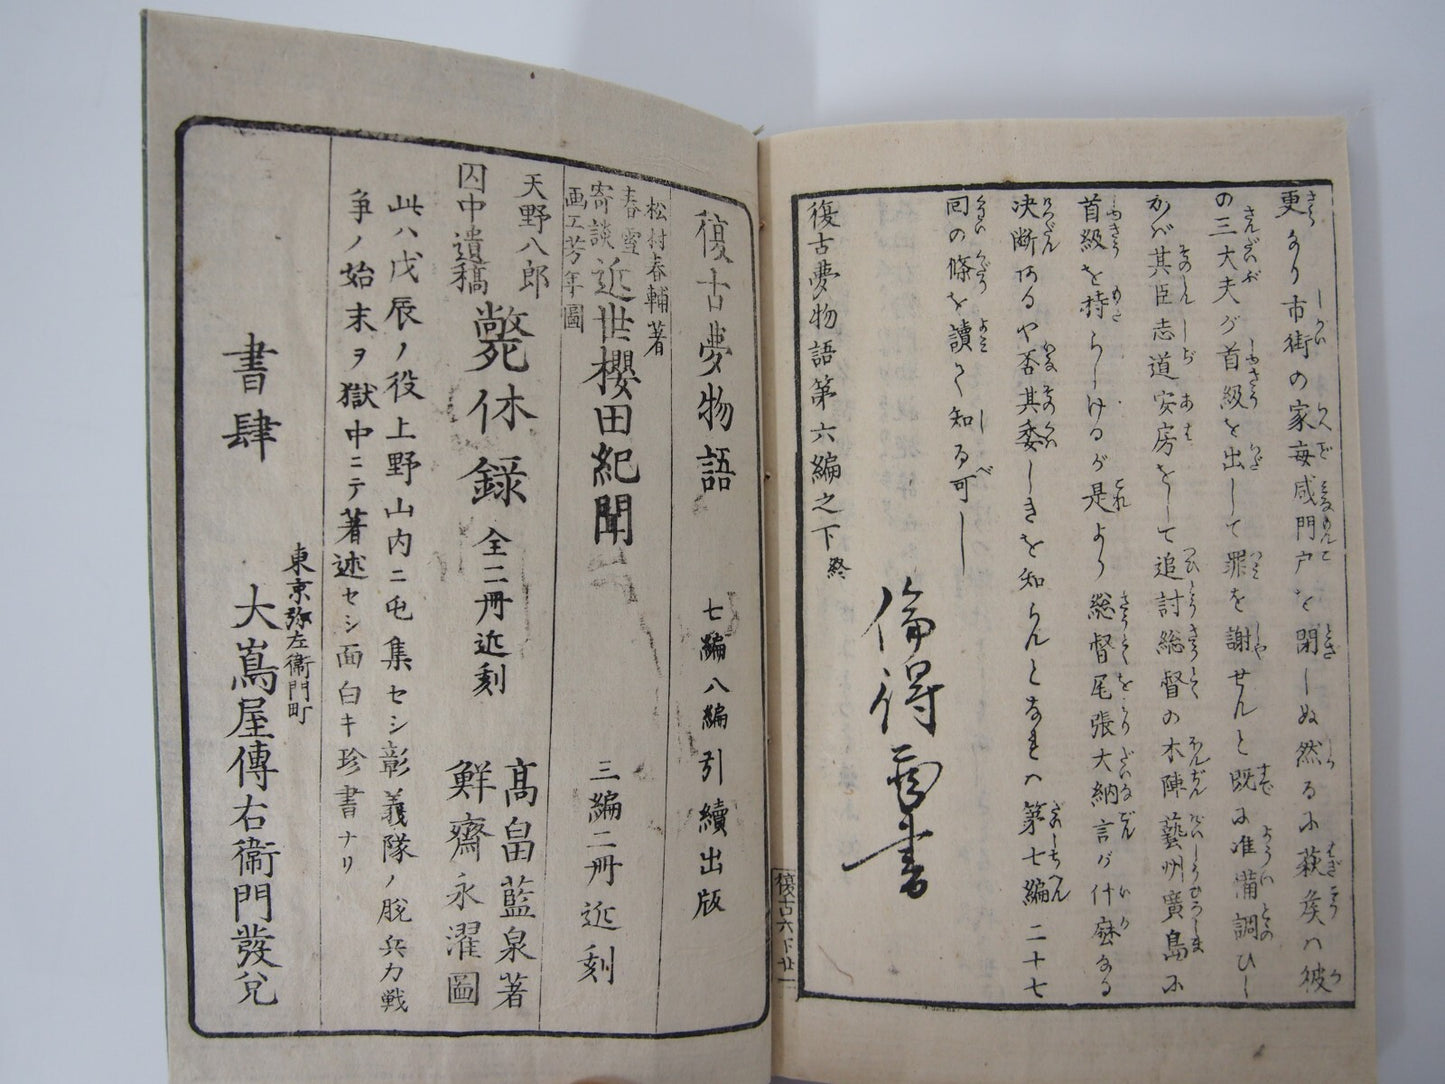 更なり市街の家毎咸門戸を閉しぬ然るに萩侯ハ彼
の三大夫が首級を出して罪を謝せんと既に准備調ひし
かバ其臣志道安房をして追討総督の本陣藝州廣島に
首級を持らしけるが是より総督尾張大納言が什麼なる
決断あるや否其委しきを知らんとなれハ第七編二十七
回の條を讀て知る可し
復古夢物語第六編之下終
復古六下廿
復古夢物語 七編八編引續出版
松村春輔著
春雪
寄談
画工芳年圖
近世櫻田紀聞 三編二冊近刻
天野八郎
囚中遺稿
斃休録 全二冊近刻
髙畠藍泉著
鮮齋永濯圖
此ハ戊辰ノ役上野山内ニ屯集セシ彰義隊ノ脱兵力戦
争ノ始末ヲ獄中ニテ著述セシ面白キ珍書ナリ
書肆
東京弥左衛門町
大嶌屋傳右衛門發兌